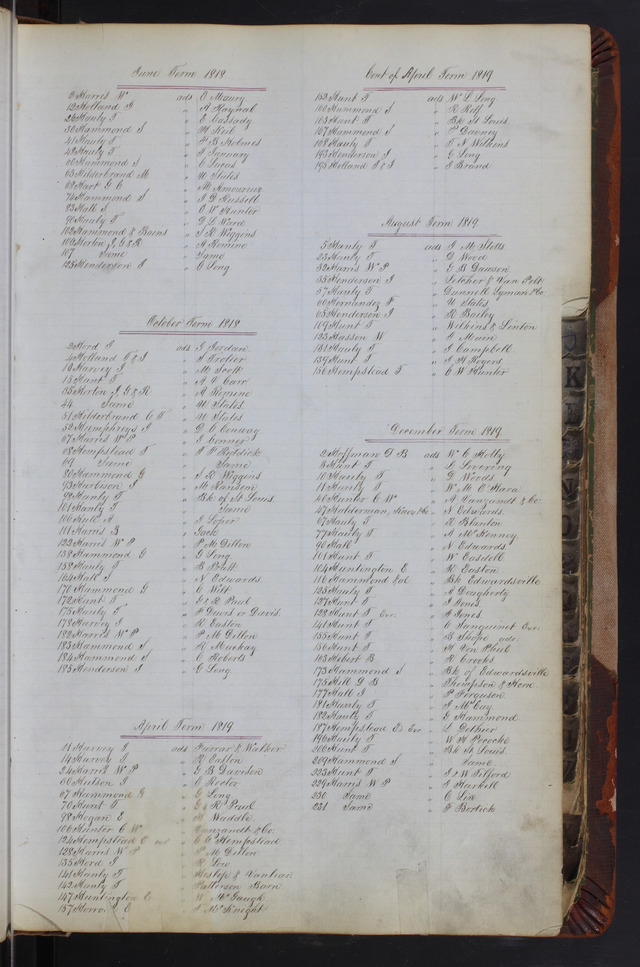 June Term 1819
3 Harris W ads O Maury
12 Holland G " A Haynal
26 Hauly T " E Cassady
36 Hammond S " H Keib
41 Hauly T " H B Holmes
42 Hauly T " J January
60 Hammond S " C Lucas
63 Hilderbrand M " U States
69 Hart G C " M Amoureux
74 Hammond S " J D Russell
83 Hall S " C W Hunter
90 Hauly T " D L Ward
103 Hammond & Bains " J R Wiggins
106 Horton J, G & R " A Romine
107 Same " Same
125 Henderson J " C Long
October Term 1819
2 Hord J ads G Jordan
4 Holland G & J " A Trotier
10 Harvey J " M Scott
15 Hunt T " A G Carr
35 Horton J, G & R " A Romine
44 Same " U States
51 Hilderbrand C T " U States
52 Humphreys J " D C Conway
67 Harris W P " J Conner
68 Hempstead T " J P Reddick
69 Same " Same
80 Hammond G " J R Wiggins
93 Harbison J " M Ransom
98 Hanly T " Bk of St Louis
101 Hanly T " Same
100 Hull A " J Loper
101 Harris B " Jack
133 Harris W P " P M Dillon
138 Hammond G " G Long
152 Hauly J " B Pratt
164 Hall J " N Edwards
170 Hammond G " C Wilt
172 Hunt T " G & R Paul
175 Hauly T " P Duest or Davis
178 Harvey J " R Easton
182 Harris W P " P M Dillon
183 Hammond S " R Mackay
184 Hammond S " C Roberts
185 Henderson J " C Long
April Term 1819
11 Harvey J ads Farrar & Walker
14 Harvey J " R Easton
24 Harris W P " G B Dawson
60 Hutson J " C Hector
67 Hammond G " G Long
70 Hunt T " G & R Paul
98 Hogan E " A Waddle
106 Hunter C W " Vanzandt & Co.
124 Hempstead C exr " C C Hempstead
128 Harris W P " P M Dillon
135 Hord J " R Low
141 Hanly T " Heslep & Vantran
142 Hanly T " Patterson Barn
147 Huntington E " W McGaugh
157 Horro E " A McKnight
Cont of April Term 1819
153 Hunt T ads W L Long
160 Hammond S " R Riff
163 Hunt T " Bk St Louis
167 Hammond S " P Dauney
168 Hauly T " S N Wilkins
193 Henderson J " G Long
195 Holland T & J " S Brand
August Term 1819
5 Hanly T ads J M Stitts
25 Hanly T " D Wood
32 Harris W P " G B Dawson
35 Henderson J " Letcher & Van Pelt
57 Hauly T " Gunnell Lyman & Co
60 Hernandez F " U States
65 Henderson J " R Bailey
109 Hunt T " Wilkins & Linton
125 Hasson W " E Mann
131 Hauly T " J Campbell
139 Hunt T " J H Rogers
150 Hempstead T " C W Hunter
December Term 1819
2 Hoffman D B ads W C Holly
8 Hunt T " L Levering
10 Hauly T " G Woods
16 Hanly T " W M O'Hara
46 Hunter C W " A Vanzandt & Co.
47 Halderman, " N Edwards
67 Hauly T " R Blanton
77 Hauly T " A McKenney
90 Hall " N Edwards
101 Hunt T " W Easdell
104 Huntington E " R Easton
110 Hammond &al " Bk Edwardsville
125 Hauly T " A Dougherty
127 Hunt T " J Jones
132 Hunt T Exr " J Jones
141 Hunt T " C Sanguinet Exr.
155 Hunt T " B Shope adr.
156 Hunt T " H Von Phul
163 Hebert B " R Crooks
173 Hammond S " Bk of Edwardsville
175 Hill D B " Thompson & Horn
177 Hall J " P Ferguson
181 Hauly T " J McCay
182 Hauly T " E Hammond
187 Hempstead E's Exr " L Dethier
196 Hauly T " W H Pococke
200 Hunt T " Bk St Louis
209 Hammond S " Same
223 Hunt T " J & W Tilford
229 Harris W P " J Haskill
230 Same " C Lin
231 Same " F Bostick
K
N
O